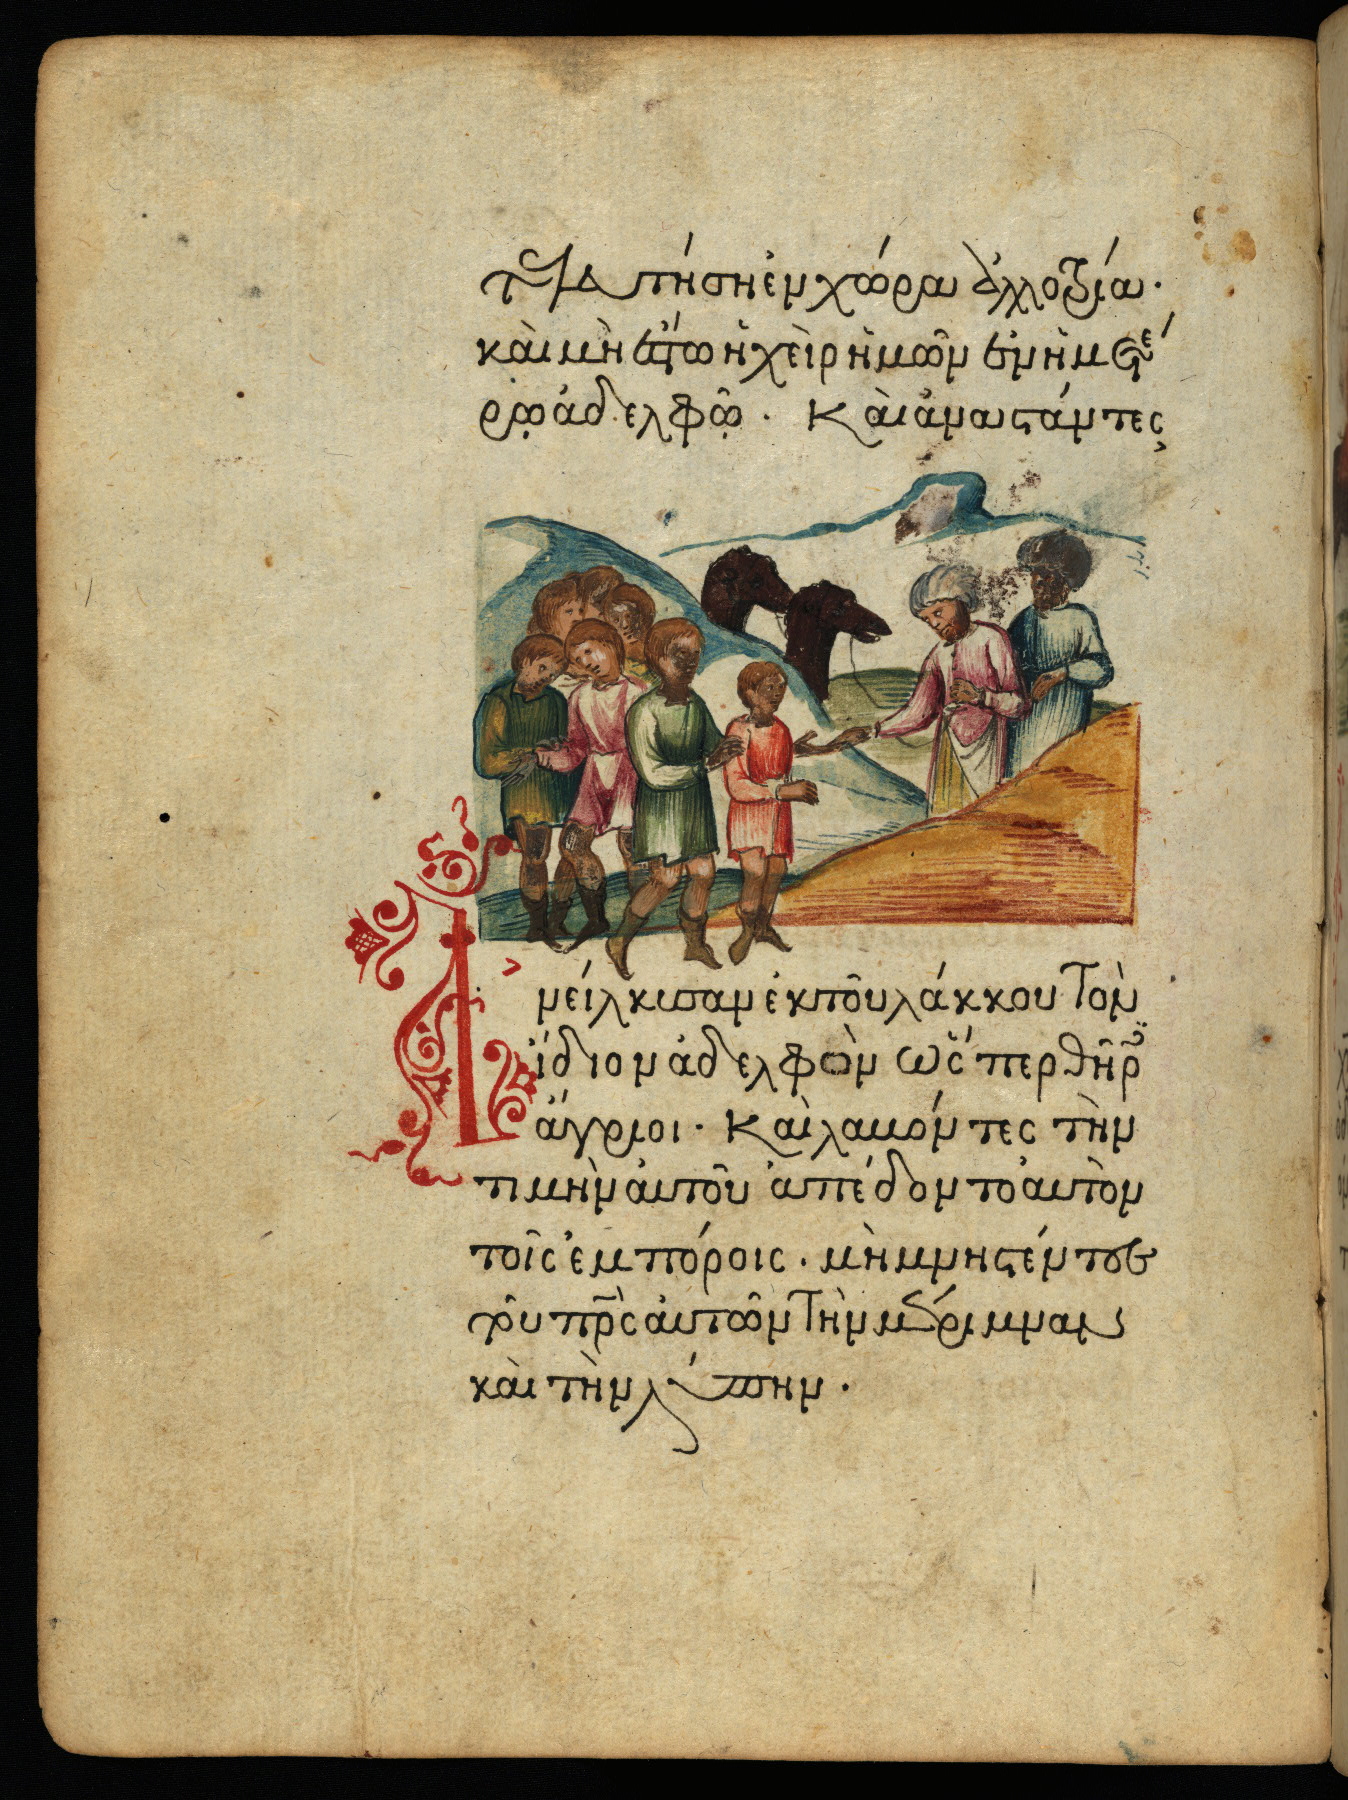 τελευτήσῃ ἐν χώρα ἀλλοτρία·
καὶ μὴ ἔστω ἡ χεὶρ ἡμῶν ἐν ἡμετέ
ρῳ ἀδελφῷ· Καὶ ἀναστάντες
Ἀνείλκυσαν ἐκ τοῦ λάκκου τὸν
ἴδιον ἀδελφὸν ὥσπερ θῆρες
ἄγριοι· Καὶ λαβόντες τὴν
τιμὴν αὐτοῦ ἀπέδοντο αὐτὸν
τοῖς ἐμπόροις· μὴ μνησθέντες
τοῦ πρ̅ς αὐτῶν τὴν μέριμναν
καὶ τὴν λύπην·